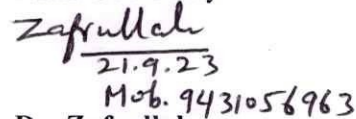 Zafrullah
21.9.23
Mob. 9431056963